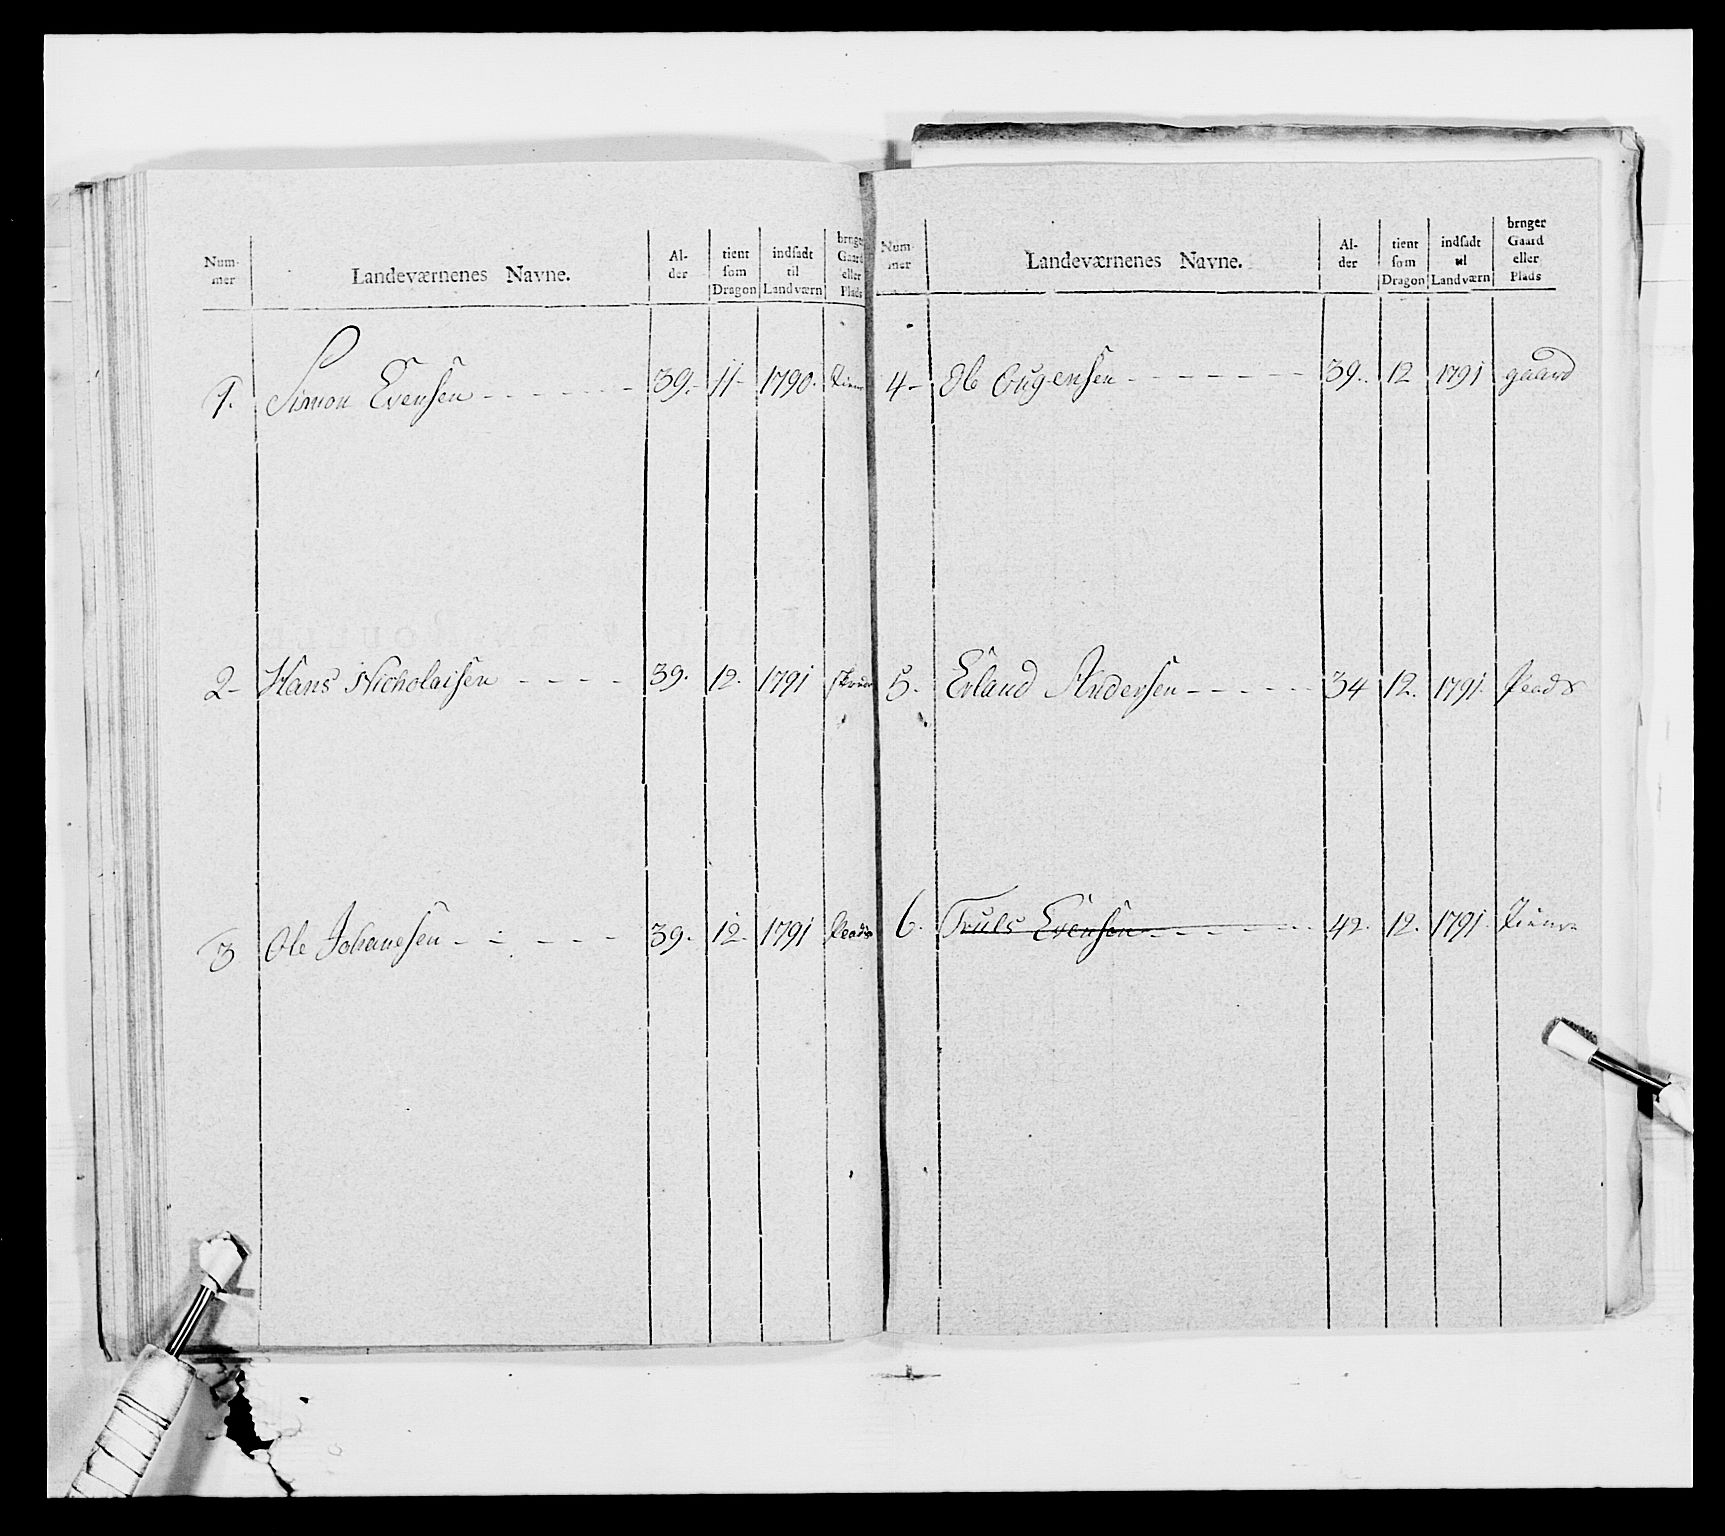 Num-
mer
Landeværnenes Navne.
Al-
der
tient
som
Dragon
indsadt
til
Landværn
bruger
Gaard
eller
Plads
1. Simon Evensen - - - - - - 39. 11- 1790.
2- Hans Nicholaisen - - - - 39. 12. 1791
3 Ole Johanesen - - - - - 39. 12. 1791 Plads
Num-
mer
Landeværnenes Navne.
Al-
der
tient
som
Dragon
indsadt
til
Landværn
bruger
Gaard
eller
Plads
4- Ole - - - - - - - 39. 12 1791 gaard
5. Erland Andersen - - - - - 34 12. 1791. Plads
6. Truls Evensen - - - - - - 42. 12. 1791.